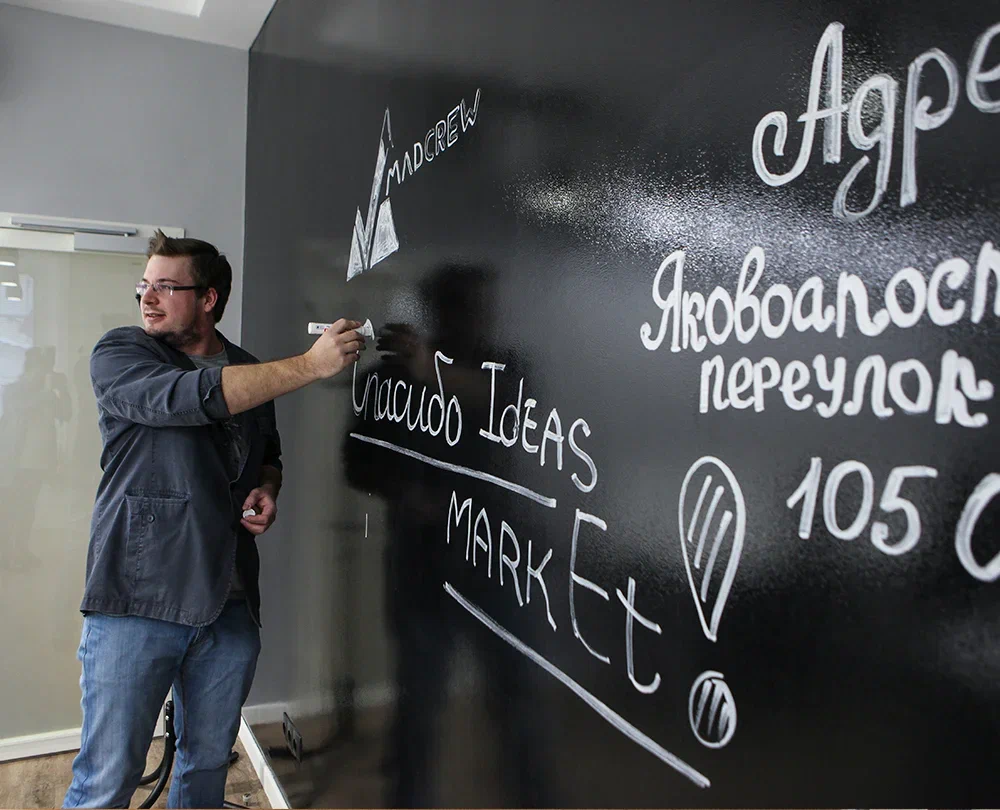 MADCREW
Спасибо IdEAS
MARKEt!
Адре
Яковоапост
переулок
105